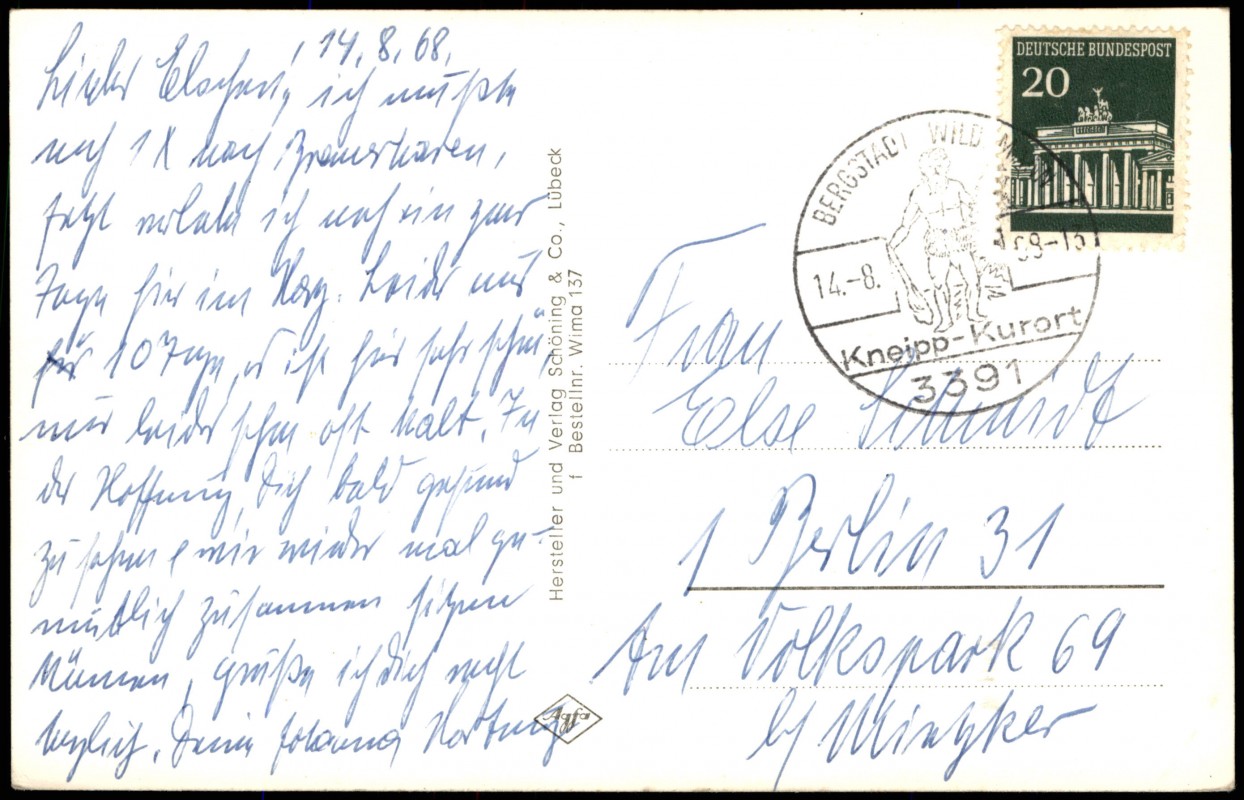 14.8.68.
Liebes Elschen, ich mußte
noch 1X nach Bremerhaven,
jetzt erhole ich noch ein paar
Tage hier im Harz. Leider nur
für 10 Tage, es ist hier sehr schön,
nur leider schon oft kalt. In
der Hoffnung, Dich bald gesund
zu sehen & wir wieder mal ge-
mütlich zusammen sitzen
können, grüße ich Dich recht
herzlich. Deine Johanna Hartung
Hersteller und Verlag Schöning & Co., Lübeck
f Bestellnr. Wima 137
Agfa
DEUTSCHE BUNDESPOST
20
BERGSTADT WILDEMANN
14.-8. 68-13
Kneipp-Kurort
3391
Frau
Else Schmidt
1 Berlin 31
Am Volkspark 69
b/